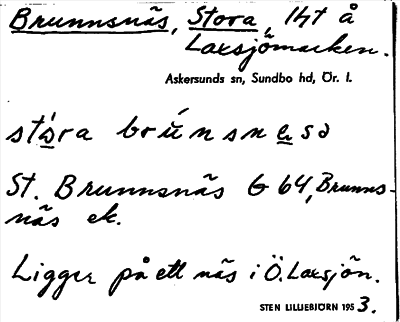 Brunnsnäs, Stora, lht å
Laxsjömarken.
Askersunds sn, Sundbo hd, Ör. l.
St. Brunnsnäs G 64, Brunns-
näs ek.
Ligger på ett näs i Ö. Laxsjön.
STEN LILLIEBJÖRN 1953.